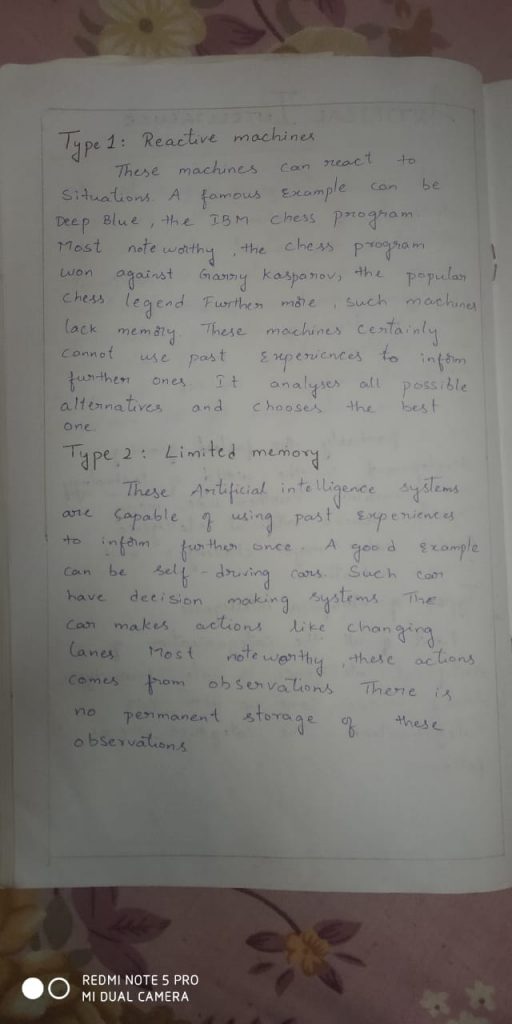 Type 1: Reactive machines
These machines can react to
Situations. A famous Example can be
Deep Blue, the IBM Chess program.
Most note worthy, the chess program
won against Garry Kasparov, the popular
Chess legend Further more, such machines
lack memory. These machines Certainly
Cannot use past Experiences to inform
further ones. It analyses all possible
alternatives and chooses the best
one.
Type 2: Limited memory.
These Artificial intelligence systems
are Capable of using past Experiences
to inform further once. A good Example
Can be self-driving cars. Such car
have decision making systems The
Car makes actions like changing
Lanes Most note worthy, these actions
comes from observations There is
no permanent storage of these
observations
REDMI NOTE 5 PRO
MI DUAL CAMERA